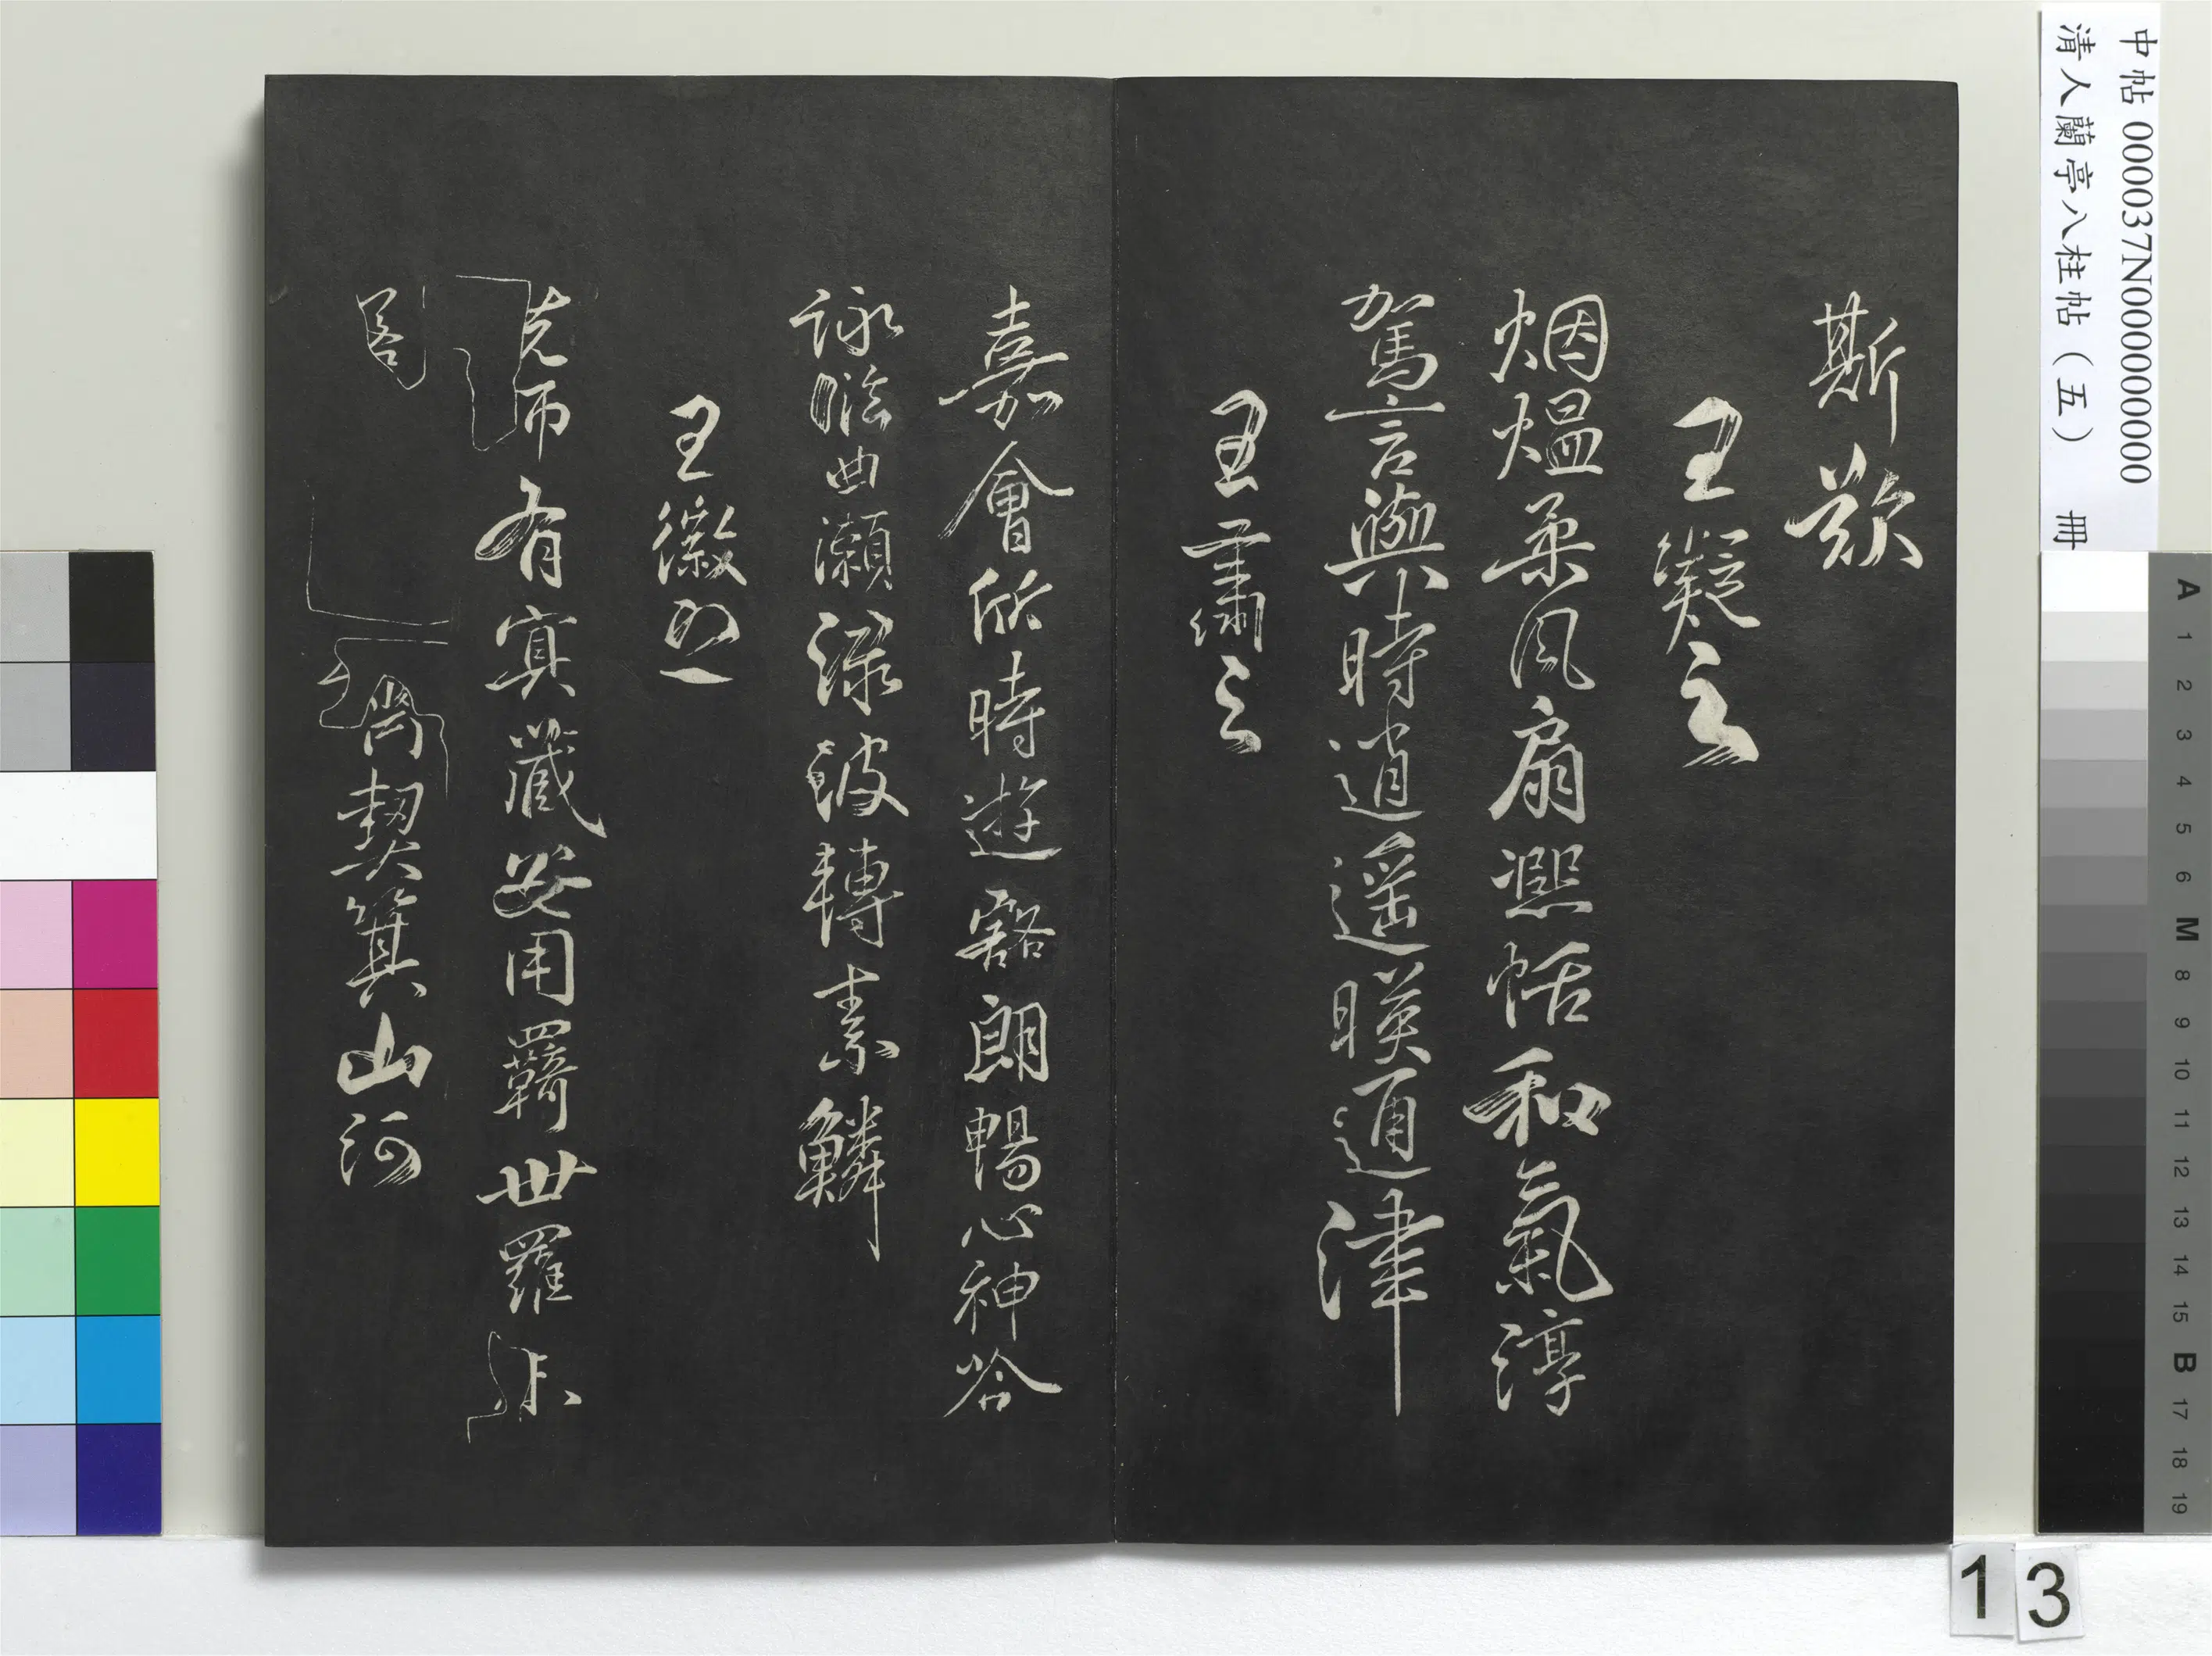 中帖000037N000000000
清人蘭亭八柱帖（五） 冊
斯歡
王凝之
烟熅柔風扇凞恬和氣淳
駕言興時逍遥暎通津
王肅之
嘉會欣時遊豁朗暢心神吟
詠曲瀨淥波轉素鱗
王徽之
有冥藏安用羈世羅
契箕山河
A 1 2 3 4 5 6 M 8 9 10 11 12 13 14 15 B 17 18 19
13